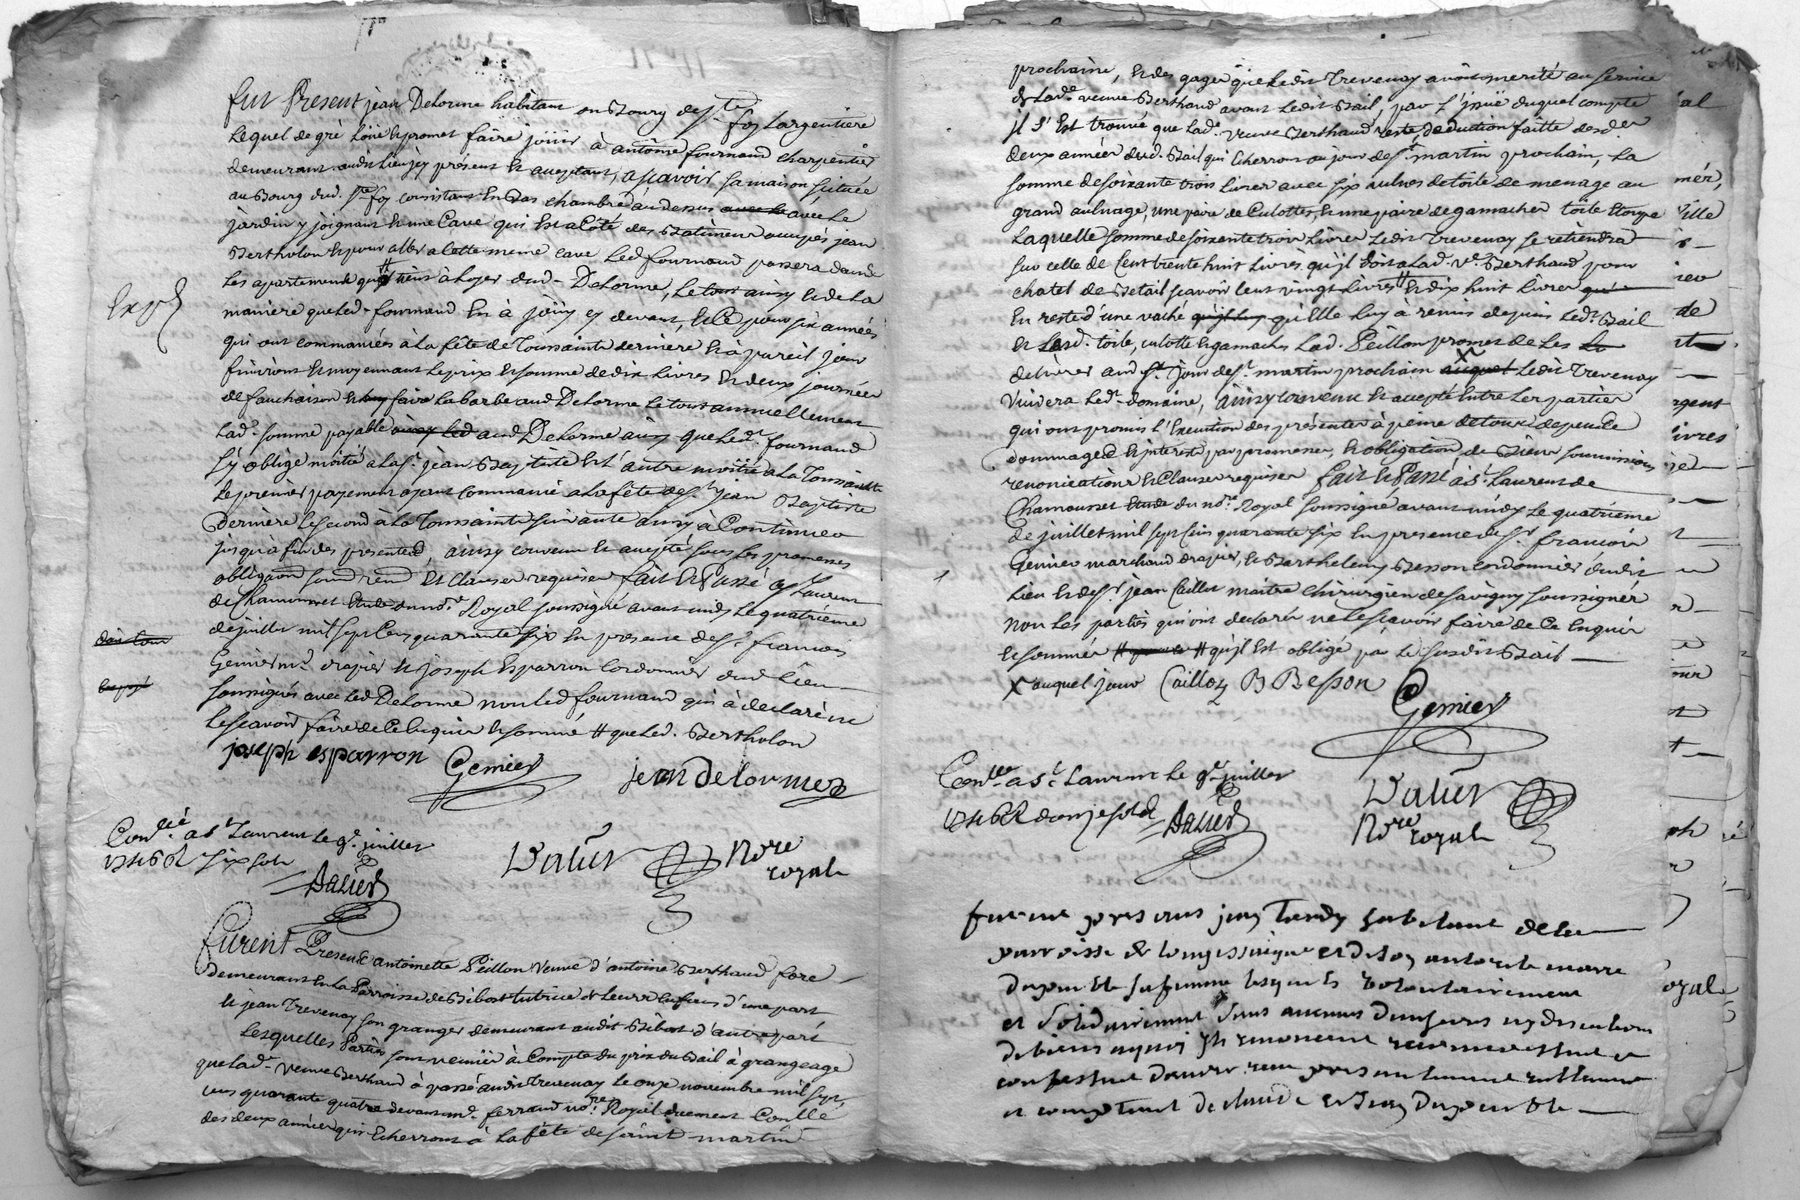 fut Present jean Delorme habitant au Bourg de ste foy Largentiere
Lequel de gré Loüe et promet faire joüir à antoine fournand charpentier
demeurant audit Lieu jcy présent et acceptant, ascavoir sa maison scituée
au Bourg dud. ste foy consistant En Bas chambre au dessus avec Le
jardin y joignant et une Cave qui Est a Côté des Batiments occupés jean
Bertholon et pour aller a Cette meme cave Led fournand passera dans
Les apartements que # tient à Loyer dud. Delorme, Le tout ainsy et de La
maniere que Led. fournand En à joüy cy devant, et Ce pour six années
qui ont commancées à La fête de Toussaints derniere et à pareil jour
finiront et moyennant Le prix et somme de dix Livres et deux journées
de fauchaison et faire La barbe aud Delorme Le tout annuellement
Lad. somme payable aud Delorme ainsy que Ledt. fournand
s'y oblige moitié a La st. jean Baptiste et L'autre moitié a La Toussaints
Le premier payement ayant commancé a La fête de st jean Baptiste
Derniere Le second à La Toussaints suivante ainsy à Continuer
jusqu'a fin des presentes, ainsy convenu et accepté sous Les promesses
obligaon soumd renon et Clauses requises fait et Passé a st Laurent
de Chamousset Etude du nore. Royal soussigné avant midy Le quatrième
de juillet mil sept Cens quarante six En presence de sr. francois
Genier md. drapier et joseph Esparron Cordonnier dud Lieu
soussignés avec Led Delorme non Led fournand qui à declaré ne
Le scavoir faire de Ce Enquis et sommé # que Led. Bertholon
joseph esparron Genier jean delorme
Conllé a st Laurent le 9e. juillet
1746 R six sols
Dalier
Dalier Nore royal
furent Presents antoinette Peillon Veuve d'antoine Berthaud
demeurant En La Parroisse de Bibost tutrice de Leurs Enfans d'une part
et jean Trevenay son granger demeurant audit Bibost d'autre part
Lesquelles Parties sont venües à Compte du prix du Bail à grangeage
que Lade. veuve Berthaud à passé audit Trevenay Le onze novembre mil sept
cens quarante quatre devant me. ferrand nore. Royal düement Conllé
des deux années qui Echerront à La fête de saint martin
prochaine, et des gages que Ledit Trevenay avoit merité au service
de Lade. veuve Berthaud avant Ledit Bail, par L'jssüe duquel compte
jl s'Est trouvé que Lade. veuve Berthaud reste, deduction faitte desdes
deux années dud. Bail qui Echerront au jour de st. martin prochain, La
somme de soixante trois Livres avec six aulnes de toile de menage au
grand aulnage, une paire de Culottes, et une paire de gamaches toile Etoupe
Laquelle somme de soixante trois Livres Ledit Trevenay se retiendra
sur celle de Cent trente huit Livres qu'jl doit a Lad. ve. Berthaud pour
chatel de Betail scavoir Cent vingt Livres # et dix huit Livres
En reste d'une vache qu'Elle Luy à remis depuis Led. Bail
et Lesd. toile, culotte et gamaches Lad. Peillon promet de Les
delivrer aud st. jour de st. martin prochain x Ledit Trevenay
vuidera Led. domaine, ainsy convenu et accepté Entre Les parties
qui ont promis L'Execution des presentes à peine de tous depends
dommages et jnterets par promesses, et obligation de Biens soumissions
renonciations et Clauses requises fait et Passé à st. Laurent de
Chamousset Etude du nore. Royal soussigné avant midy Le quatrième
de juillet mil sept Cens quarante six En presence de sr. francois
Genier marchand drapier, et Barthelemy Besson Cordonnier dudit
Lieu et de sr. jean Caillot maitre chirurgien de savigny soussignés
non Les parties qui ont declarées ne Le scavoir faire de Ce Enquis
et sommées # qu'jl Est obligé par Le susdit Bail
x auquel jour Caillot B Besson Genier
Conllé a st. Laurent le 9e juillet
1746 R douze sols
Dalier
Dalier Nore royal
furent presens jean Tardy habitant de la
parroisse de Longessaigne et de son autorité
sa femme lesquels volontairement
et solidairement sans aucunes
de biens